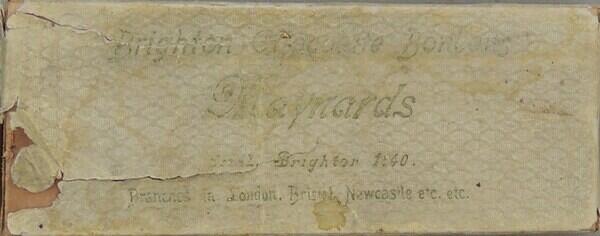 Brighton Chocolate Bonbons
Maynards
Brighton 1840.
Branches in London, Bristol, Newcastle etc. etc.